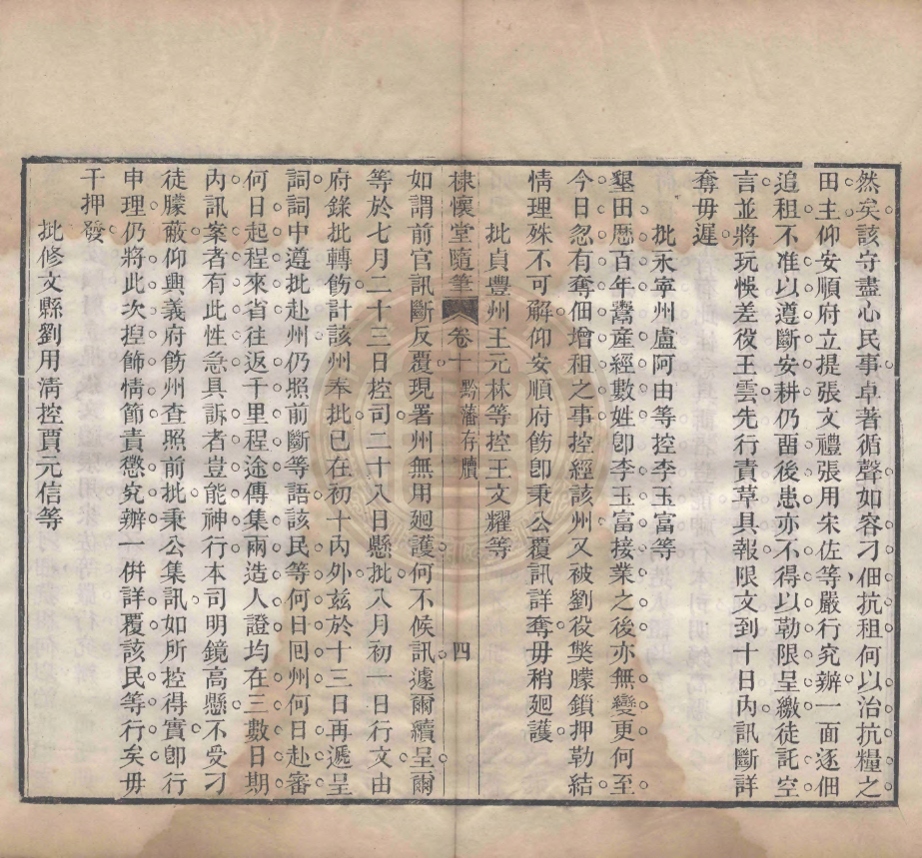 然矣該守盡心民事卓著循聲如容刁佃抗租何以治抗糧之
田主仰安順府立提張文禮張用宋佐等嚴行究辦一面逐佃
追租不准以遵斷安耕仍畱後患亦不得以勒限呈繳徒託空
言並將玩悞差役王雲先行責草具報限文到十日內訊斷詳
奪毋遲
批永寧州盧阿由等控李玉富等
墾田歷百年鬻產經數姓卽李玉富接業之後亦無變更何至
今日忽有奪佃增租之事控經該州又被劉役獘朦鎖押勒結
情理殊不可解仰安順府飭卽秉公覆訊詳奪毋稍廻護
批貞豐州王元林等控王文耀等
棣懷堂隨筆 卷十 黔藩存牘 四
如謂前官訊斷反覆現署州無用廻護何不候訊遽爾續呈爾
等於七月二十三日控司二十八日懸批八月初一日行文由
府錄批轉飭計該州奉批已在初十內外玆於十三日再遞呈
詞詞中遵批赴州仍照前斷等語該民等何日囘州何日赴審
何日起程來省往返千里程途傳集兩造人證均在三數日期
內訊案者有此性急具訴者豈能神行本司明鏡高懸不受刁
徒朦蔽仰興義府飭州查照前批秉公集訊如所控得實卽行
申理仍將此次捏飾情節責懲究辦一併詳覆該民等行矣毋
干押發
批修文縣劉用淸控賈元信等